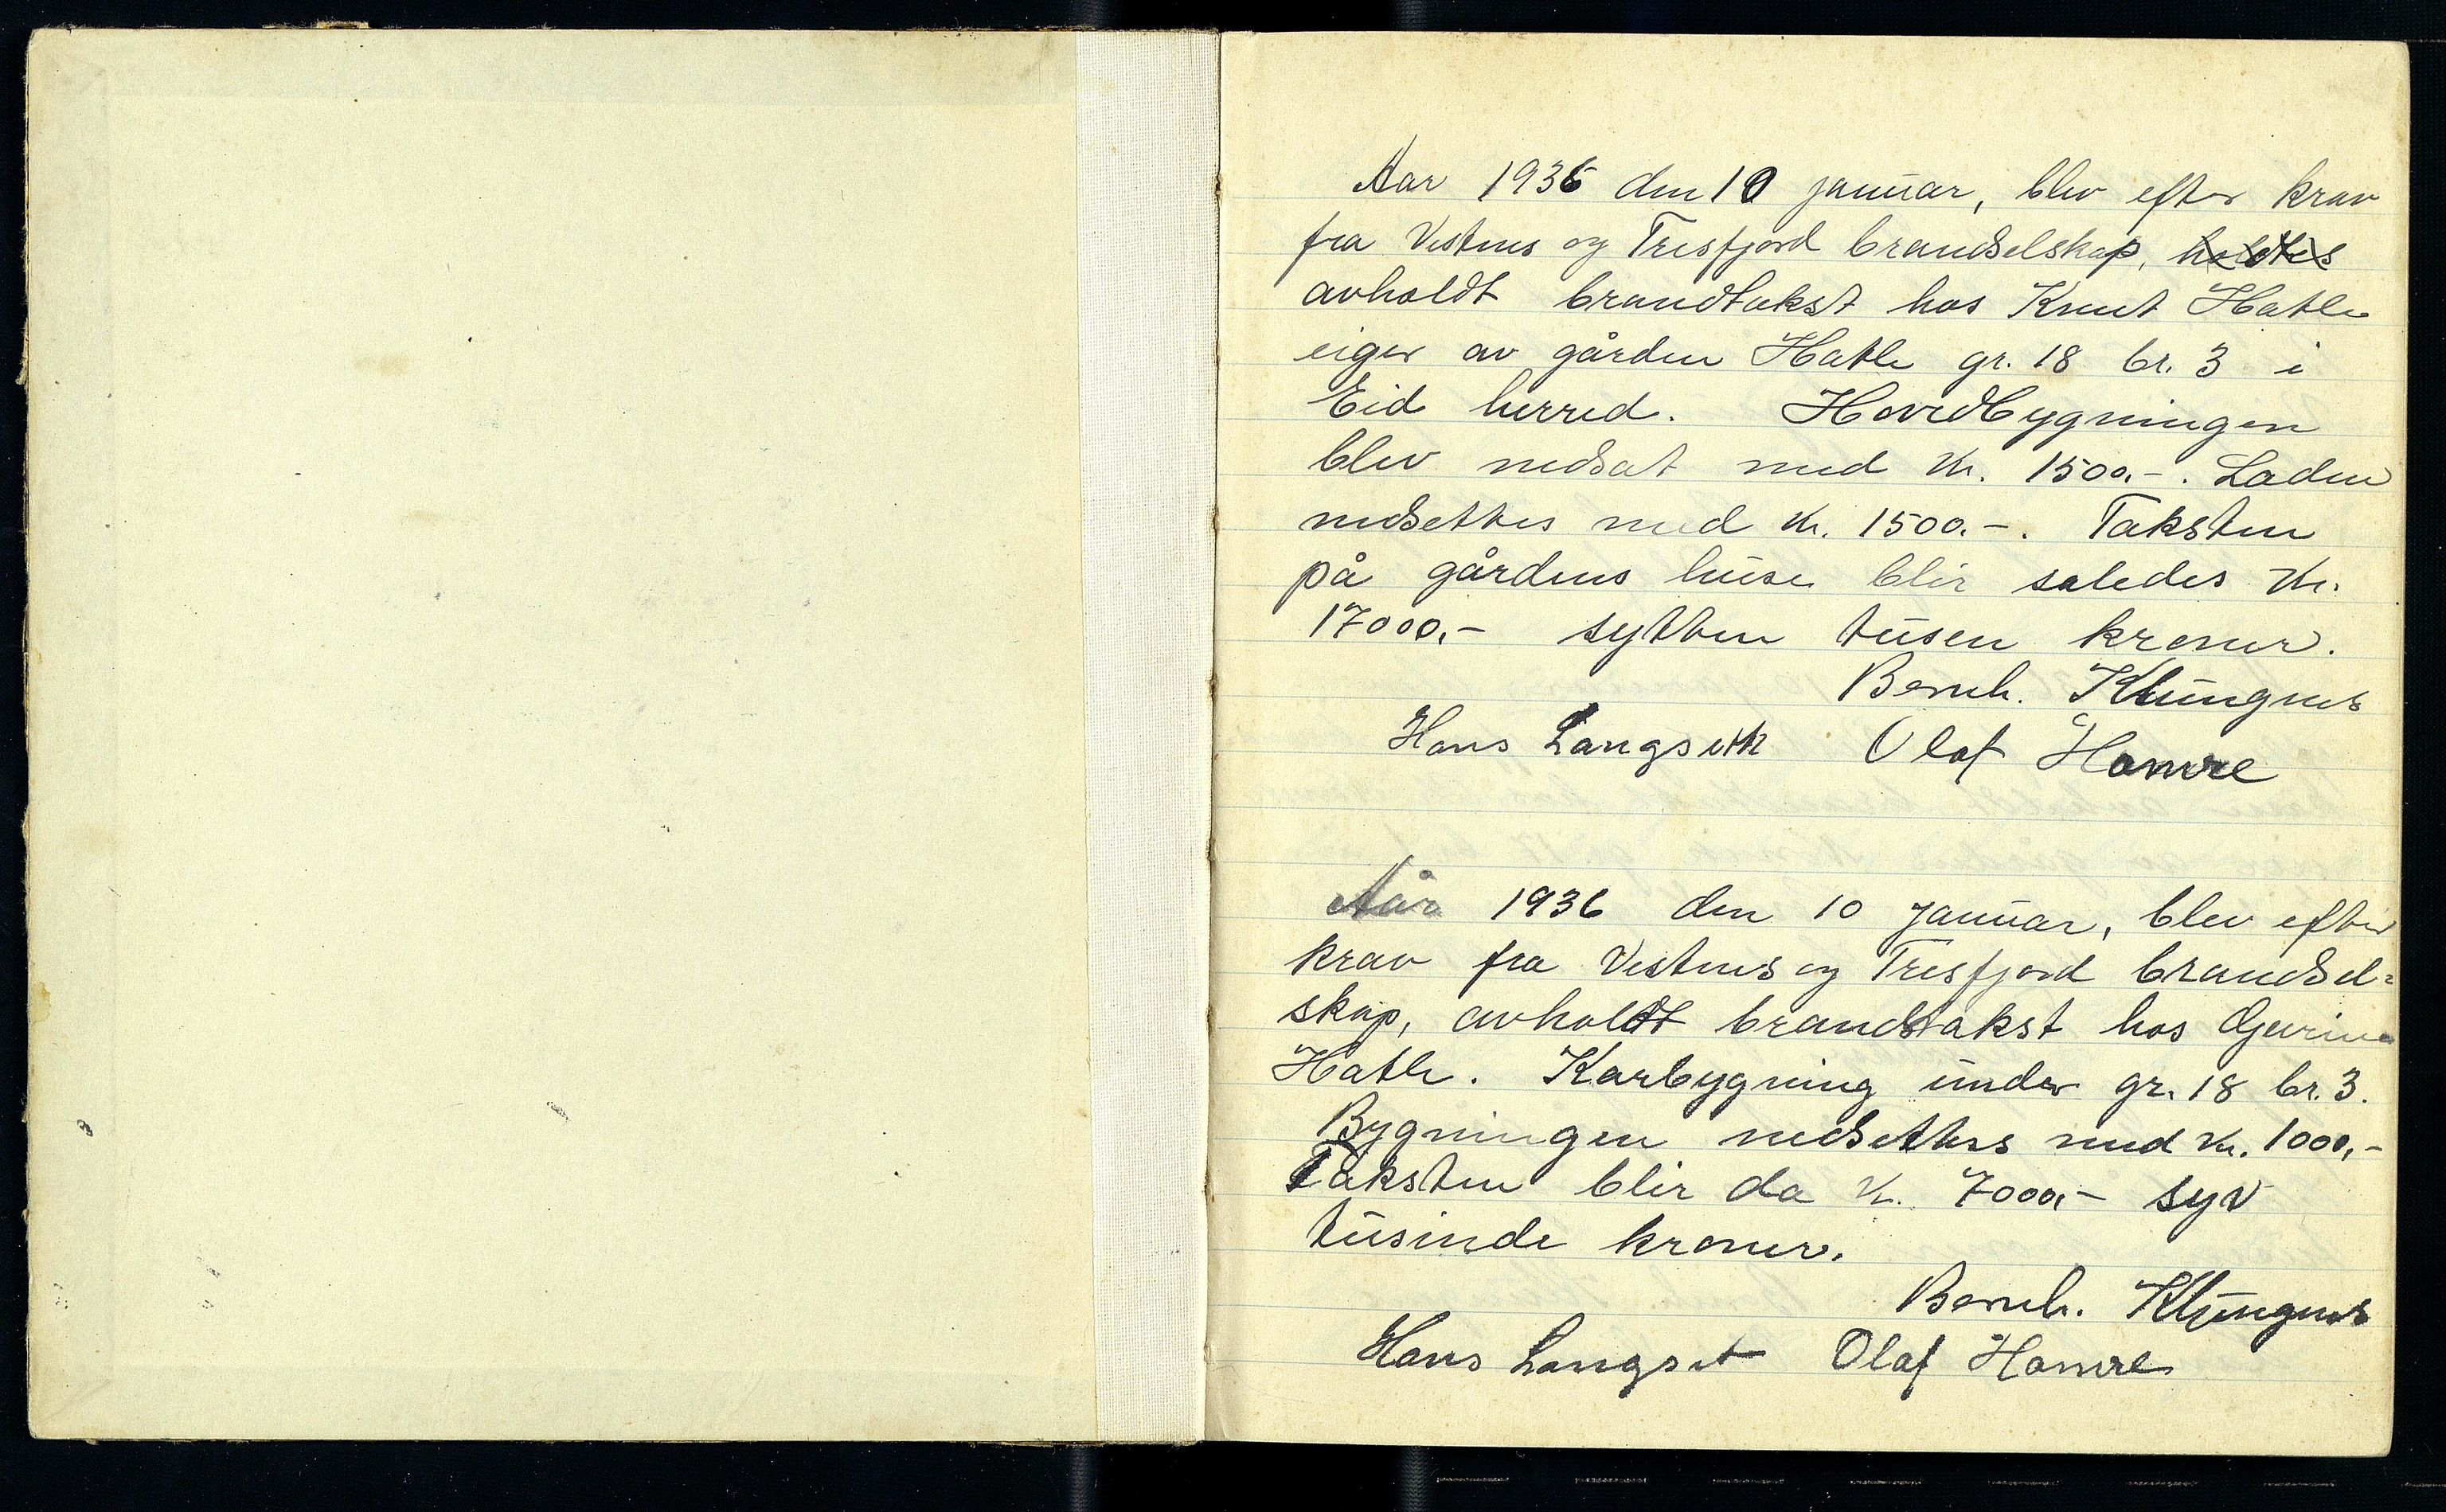 Aar 1936 den 10 januar, blev efter krav
fra Vestnes og Tresfjord brandselskap, holdtes
avholdt brandtakst hos Knut Hatle
eiger av gården Hatle gr. 18 br. 3 i
Eid herred. Hovedbygningen
blev nedsat med kr. 1500.-. Laden
nedsettes med kr. 1500.-. Taksten
på gårdens huse blir saledes kr.
17000.- sytten tusen kroner.
Bernh. Klungnes
Hans Langseth Olaf Hamre
Aar 1936 den 10 januar, blev efter
krav fra Vestnes og Tresfjord brandsel=
skap, avholdt brandtakst hos Gjurina
Hatle. Karbygning under gr. 18 br. 3.
Bygningen nedsettes med kr. 1000,-
Taksten blir da kr. 7000,- syv
tusinde kroner.
Bernh. Klungnes
Hans Langset Olaf Hamre